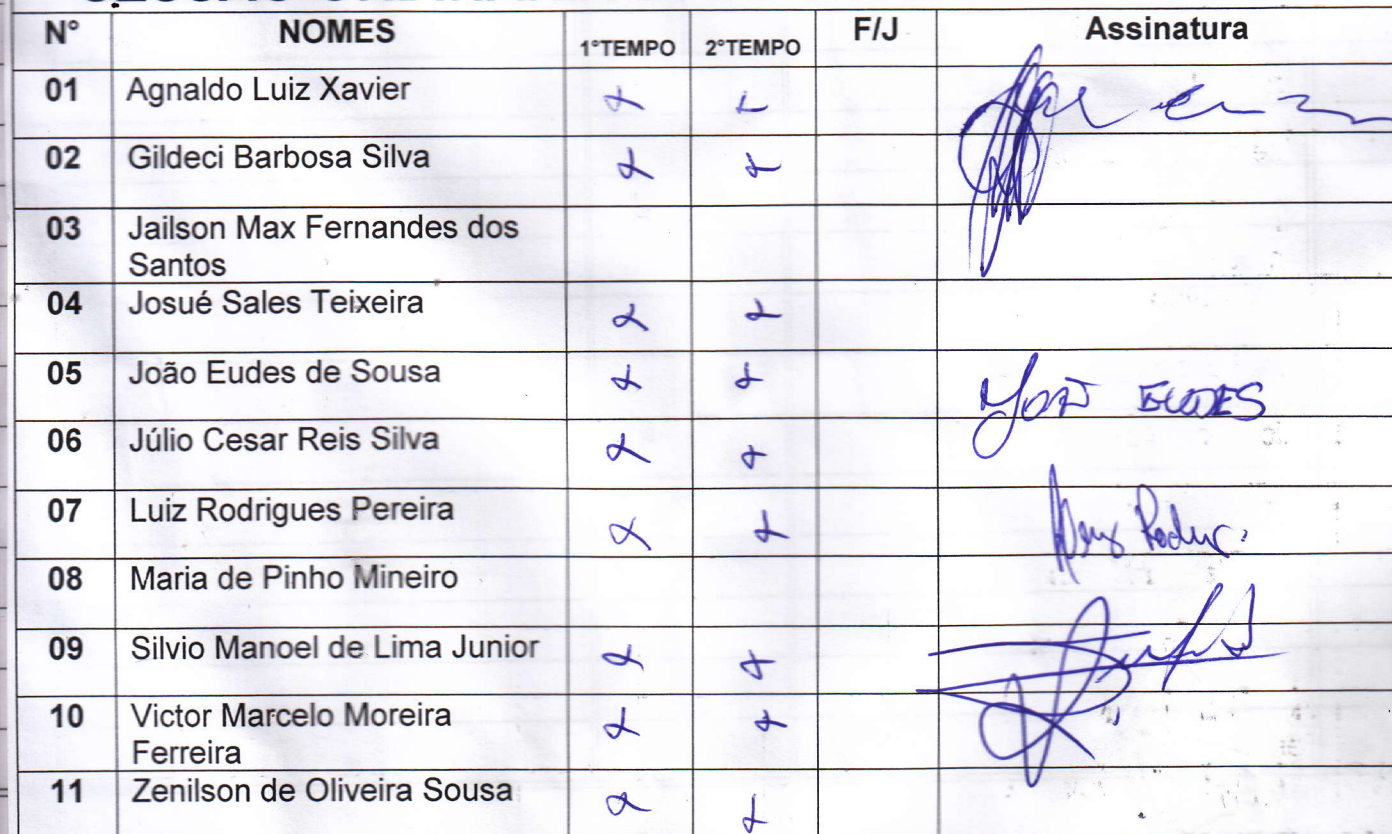 N° NOMES 1°TEMPO 2°TEMPO F/J Assinatura
01 Agnaldo Luiz Xavier x x
02 Gildeci Barbosa Silva x x
03 Jailson Max Fernandes dos
Santos
04 Josué Sales Teixeira x x
05 João Eudes de Sousa x x JOÃO EUDES
06 Júlio Cesar Reis Silva x x
07 Luiz Rodrigues Pereira x x
08 Maria de Pinho Mineiro
09 Silvio Manoel de Lima Junior x x
10 Victor Marcelo Moreira x x
Ferreira
11 Zenilson de Oliveira Sousa x x